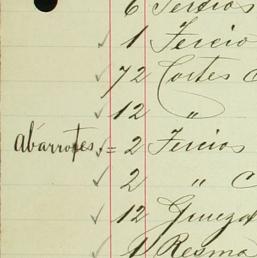 6 Tercios
✓ 1 Tercio
✓ 72 Cortes C
✓ 12 "
abarrotes. ✓ = 2 Tercios
✓ 2 " C
✓ 12 Gruezas
✓ 1 Resma